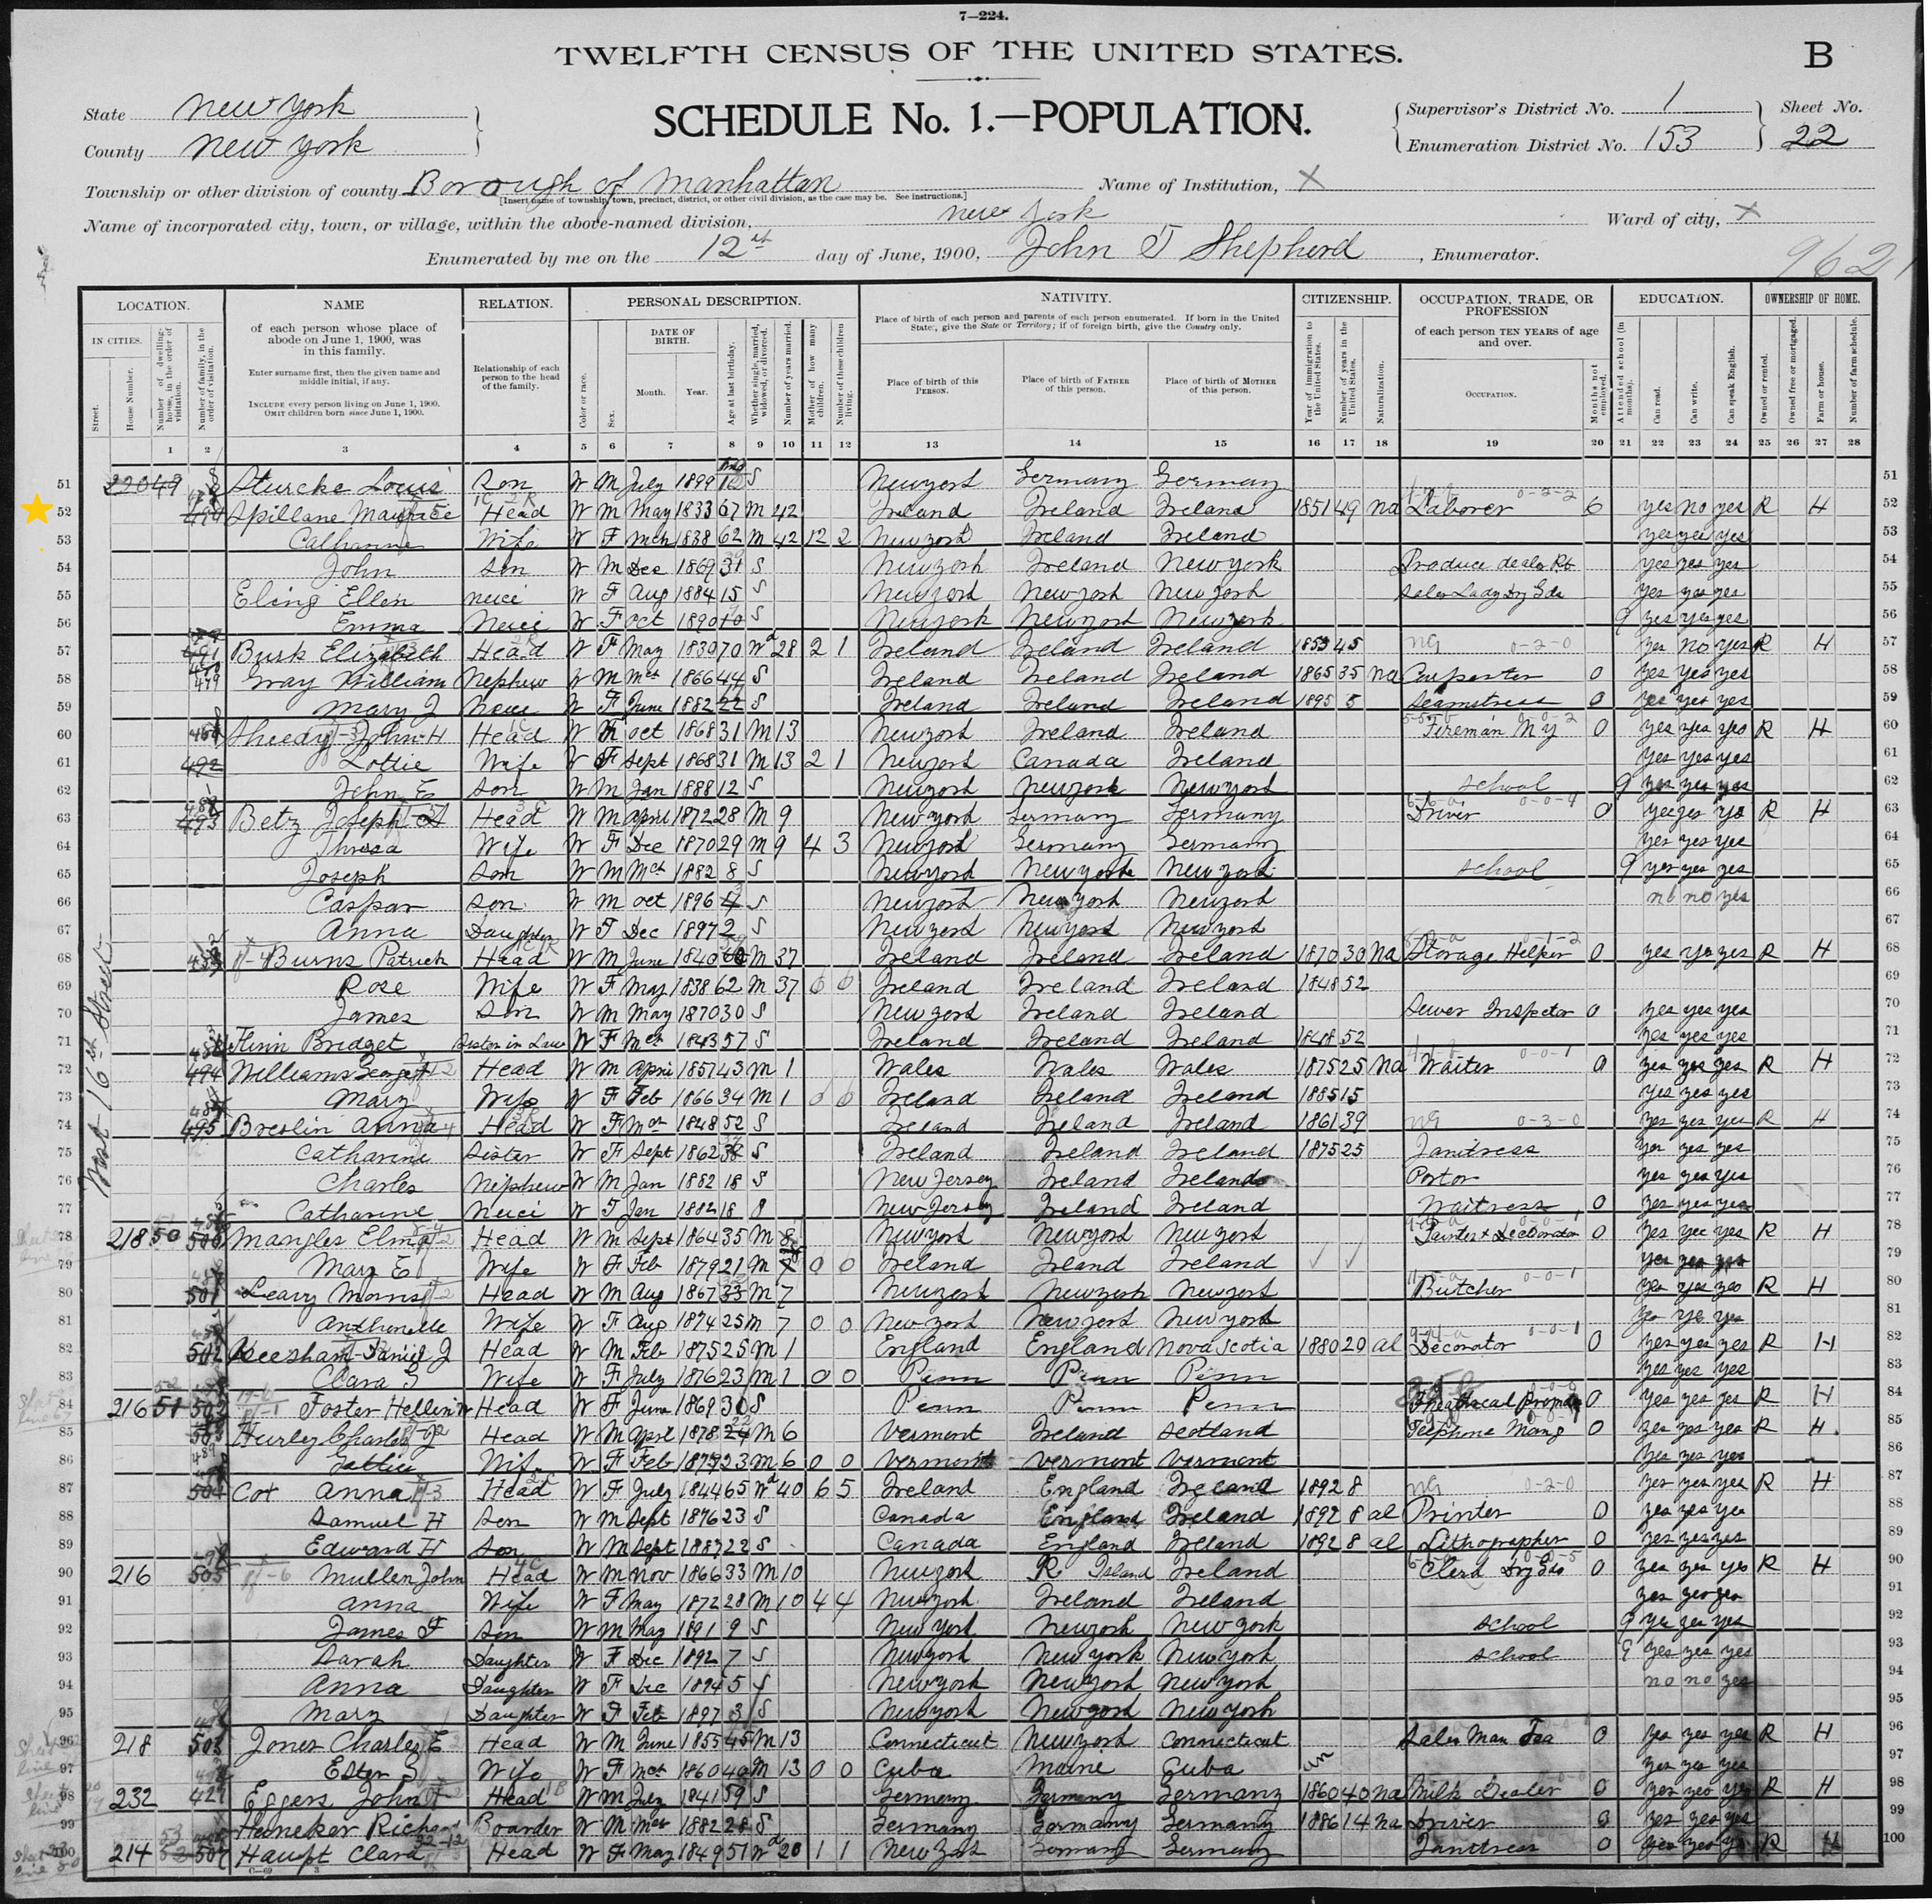 7—224.
TWELFTH CENSUS OF THE UNITED STATES.
B
SCHEDULE No. 1.—POPULATION.
State New York
County New York
Supervisor's District No. 1
Enumeration District No. 153
Sheet No.
22
Township or other division of county Borough of Manhattan
[Insert name of township, town, precinct, district, or other civil division, as the case may be. See instructions.]
Name of Institution, X
Name of incorporated city, town, or village, within the above-named division, New York
Ward of city, X
Enumerated by me on the 12th day of June, 1900, John T Shepherd, Enumerator.
962
LOCATION. NAME RELATION. PERSONAL DESCRIPTION. NATIVITY. CITIZENSHIP. OCCUPATION, TRADE, OR PROFESSION EDUCATION. OWNERSHIP OF HOME.
IN CITIES.
Street.
House Number.
Number of dwelling-house, in the order of visitation.
Number of family, in the order of visitation.
of each person whose place of abode on June 1, 1900, was in this family.
Enter surname first, then the given name and middle initial, if any.
INCLUDE every person living on June 1, 1900.
OMIT children born since June 1, 1900.
Relationship of each person to the head of the family.
Color or race.
Sex.
DATE OF BIRTH.
Month. Year.
Age at last birthday.
Whether single, married, widowed, or divorced.
Number of years married.
Mother of how many children.
Number of these children living.
Place of birth of each person and parents of each person enumerated. If born in the United States, give the State or Territory; if of foreign birth, give the Country only.
Place of birth of this PERSON.
Place of birth of FATHER of this person.
Place of birth of MOTHER of this person.
Year of immigration to the United States.
Number of years in the United States.
Naturalization.
of each person TEN YEARS of age and over.
OCCUPATION.
Months not employed.
Attended school (in months).
Can read.
Can write.
Can speak English.
Owned or rented.
Owned free or mortgaged.
Farm or house.
Number of farm schedule.
1 2 3 4 5 6 7 8 9 10 11 12 13 14 15 16 17 18 19 20 21 22 23 24 25 26 27 28
West 16th Street
51 220 49 Sturcke Louis Son W M July 1899 S New York Germany Germany 51
52 Spillane Head W M May 1833 67 M 42 Ireland Ireland Ireland 1851 49 na Laborer 6 yes no yes R H 52
53 Catharine Wife W F Mch 1838 62 M 42 12 2 New York Ireland Ireland yes yes yes 53
54 John Son W M Dec 1869 S New York Ireland New York Produce dealer Rt yes yes yes 54
55 Eling Ellen neice W F Aug 1884 15 S New York New York New York Sales Lady Dry Gds yes yes yes 55
56 Emma Neice W F Oct 1890 S New York New York New York 9 yes yes yes 56
57 Busk Elizabeth Head W F May 1830 70 Wd 28 2 1 Ireland Ireland Ireland 45 yes no yes R H 57
58 Gray William Nephew W M Mch 1866 S Ireland Ireland Ireland 1865 35 na Carpenter 0 yes yes yes 58
59 Mary J Neice W F June 1882 S Ireland Ireland Ireland 1895 5 Seamstress 0 yes yes yes 59
60 Sheedy John H Head W M Oct 1868 31 M 13 New York Ireland Ireland Fireman N Y 0 yes yes yes R H 60
61 492 Lottie Wife W F Sept 1868 31 M 13 2 1 New York Canada Ireland yes yes yes 61
62 John E Son W M Jan 1888 12 S New York New York New York School 9 yes yes yes 62
63 493 Betz Joseph Head W M April 1872 28 M 9 New York Germany Germany Driver 0 yes yes yes R H 63
64 Thresa Wife W F Dec 1870 29 M 9 4 3 New York Germany Germany yes yes yes 64
65 Joseph Son W M Mch 1882 8 S New York New York New York School 9 yes yes yes 65
66 Caspar Son W M Oct 1896 S New York New York New York no no yes 66
67 Anna Daughter W F Dec 1897 2 S New York New York New York 67
68 Burns Patrick Head W M June 1840 M 37 Ireland Ireland Ireland 1870 30 Na Storage Helper 0 yes yes yes R H 68
69 Rose Wife W F May 1838 62 M 37 0 0 Ireland Ireland Ireland 1848 52 69
70 James Son W M May 1870 30 S New York Ireland Ireland Sewer Inspector 0 yes yes yes 70
71 Flinn Bridget Sister in Law W F Mch 1843 57 S Ireland Ireland Ireland 1848 52 yes yes yes 71
72 494 Williams George Head W M April 1857 43 M 1 Wales Wales Wales 1875 25 Na Waiter 0 yes yes yes R H 72
73 Mary Wife W F Feb 1866 34 M 1 0 0 Ireland Ireland Ireland 1885 15 yes yes yes 73
74 495 Breslin Anna Head W F Mch 1848 52 S Ireland Ireland Ireland 1861 39 0-3-0 yes yes yes R H 74
75 Catharine Sister W F Sept 1862 S Ireland Ireland Ireland 1875 25 Janitress yes yes yes 75
76 Charles Nephew W M Jan 1882 18 S New Jersey Ireland Ireland Portor yes yes yes 76
77 Catharine Neice W F Jan 1882 18 S New Jersey Ireland Ireland Waitress 0 yes yes yes 77
78 218 50 500 Mangles Elmo Head W M Sept 1864 35 M New York New York New York Painter & Decorator 0 yes yes yes R H 78
79 Mary E Wife W F Feb 1879 21 M 0 0 Ireland Irland Ireland yes yes yes 79
80 501 Leavy Morris Head W M Aug 1867 M 7 New York New York New York Butcher yes yes yes R H 80
81 Wife W F Aug 1874 25 M 7 0 0 New York New York New York yes yes yes 81
82 502 Keeshan Daniel J Head W M Feb 1875 25 M 1 England England Nova Scotia 1880 20 al Decorator 0 yes yes yes R H 82
83 Clara Wife W F July 1876 23 M 1 0 0 Penn Penn Penn yes yes yes 83
84 216 51 Foster Head W F June 1869 S Penn Penn Penn 0 yes yes yes R H 84
85 Hurley Charles J Head W M Aprl 1878 M 6 Vermont Ireland Scotland Telephone Mang 0 yes yes yes R H 85
86 Wife W F Feb 23 M 6 0 0 Vermont Vermont Vermont yes yes yes 86
87 504 Cox Anna Head W F July 1844 65 Wd 40 6 5 Ireland England Ireland 1892 8 0-2-0 yes yes yes R H 87
88 Samuel H Son W M Sept 1876 23 S Canada England Ireland 1892 8 al Printer 0 yes yes yes 88
89 Edward H Son W M Sept 22 S Canada England Ireland 1892 8 al Lithographer 0 yes yes yes 89
90 216 505 Mullen John Head W M Nov 1866 33 M 10 New York R Island Ireland Clerk Dry Gds 0 yes yes yes R H 90
91 Anna Wife W F May 1872 28 M 10 4 4 New York Ireland Ireland yes yes yes 91
92 James F Son W M May 1891 9 S New York New York New York School 9 yes yes yes 92
93 Sarah Daughter W F Dec 1892 7 S New York New York New York School 9 yes yes yes 93
94 Anna Daughter W F Dec 1894 5 S New York New York New York no no yes 94
95 Mary Daughter W F Feb 1897 3 S New York New York New York 95
96 218 Jones Charles E Head W M June 1855 45 M 13 Connecticut New York Connecticut Sales Man Tea 0 yes yes yes R H 96
97 Ester Wife W F Mch 1860 40 M 13 0 0 Cuba Maine Cuba un yes yes yes 97
98 232 Eggers John Head W M July 1841 59 S Germany Germany Germany 1860 40 na Milk Dealer 0 yes yes yes R H 98
99 Haneker Richard Boarder W M Mar 1882 28 S Germany Germany Germany 1886 14 na Driver 0 yes yes yes 99
100 214 507 Haupt Clara Head W F May 1849 51 Wd 20 1 1 New York Germany Germany Janitress 0 yes yes yes R H 100